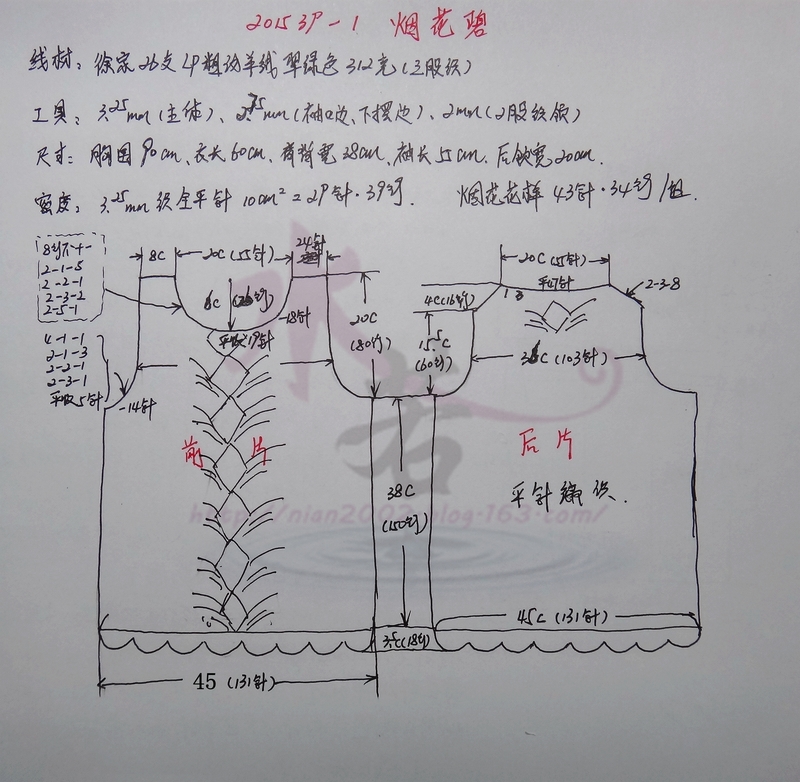 2015 3P-1 烟花碧
线材：徐家26支LP粗纺羊绒翠绿色312克(三股织)
工具：3.25mm(主体)、2.75mm(袖口边、下摆边)、2mm(2股织领)
尺寸：胸围90cm、衣长60cm、背肩宽38cm、袖长55cm、后领宽20cm.
密度：3.25mm织全平针 10cm²=29针·39行. 烟花花样43针·34行/组.
8行不+-
2-1-5
2-2-1
2-3-2
2-5-1
8C
20C(55针)
24针
6C(26行)
-18针
平收19针
4-1-1
2-1-3
2-2-1
2-3-1
平收5针
-14针
20C
(80行)
20C(55针)
平47针
2-3-8
4C(16行)
15.5C
(60行)
(103针)
前片
后片
平针编织.
38C
(150行)
http://nian2002.blog.163.com/
水若
45C(131针)
3.5C(18行)
45(131针)